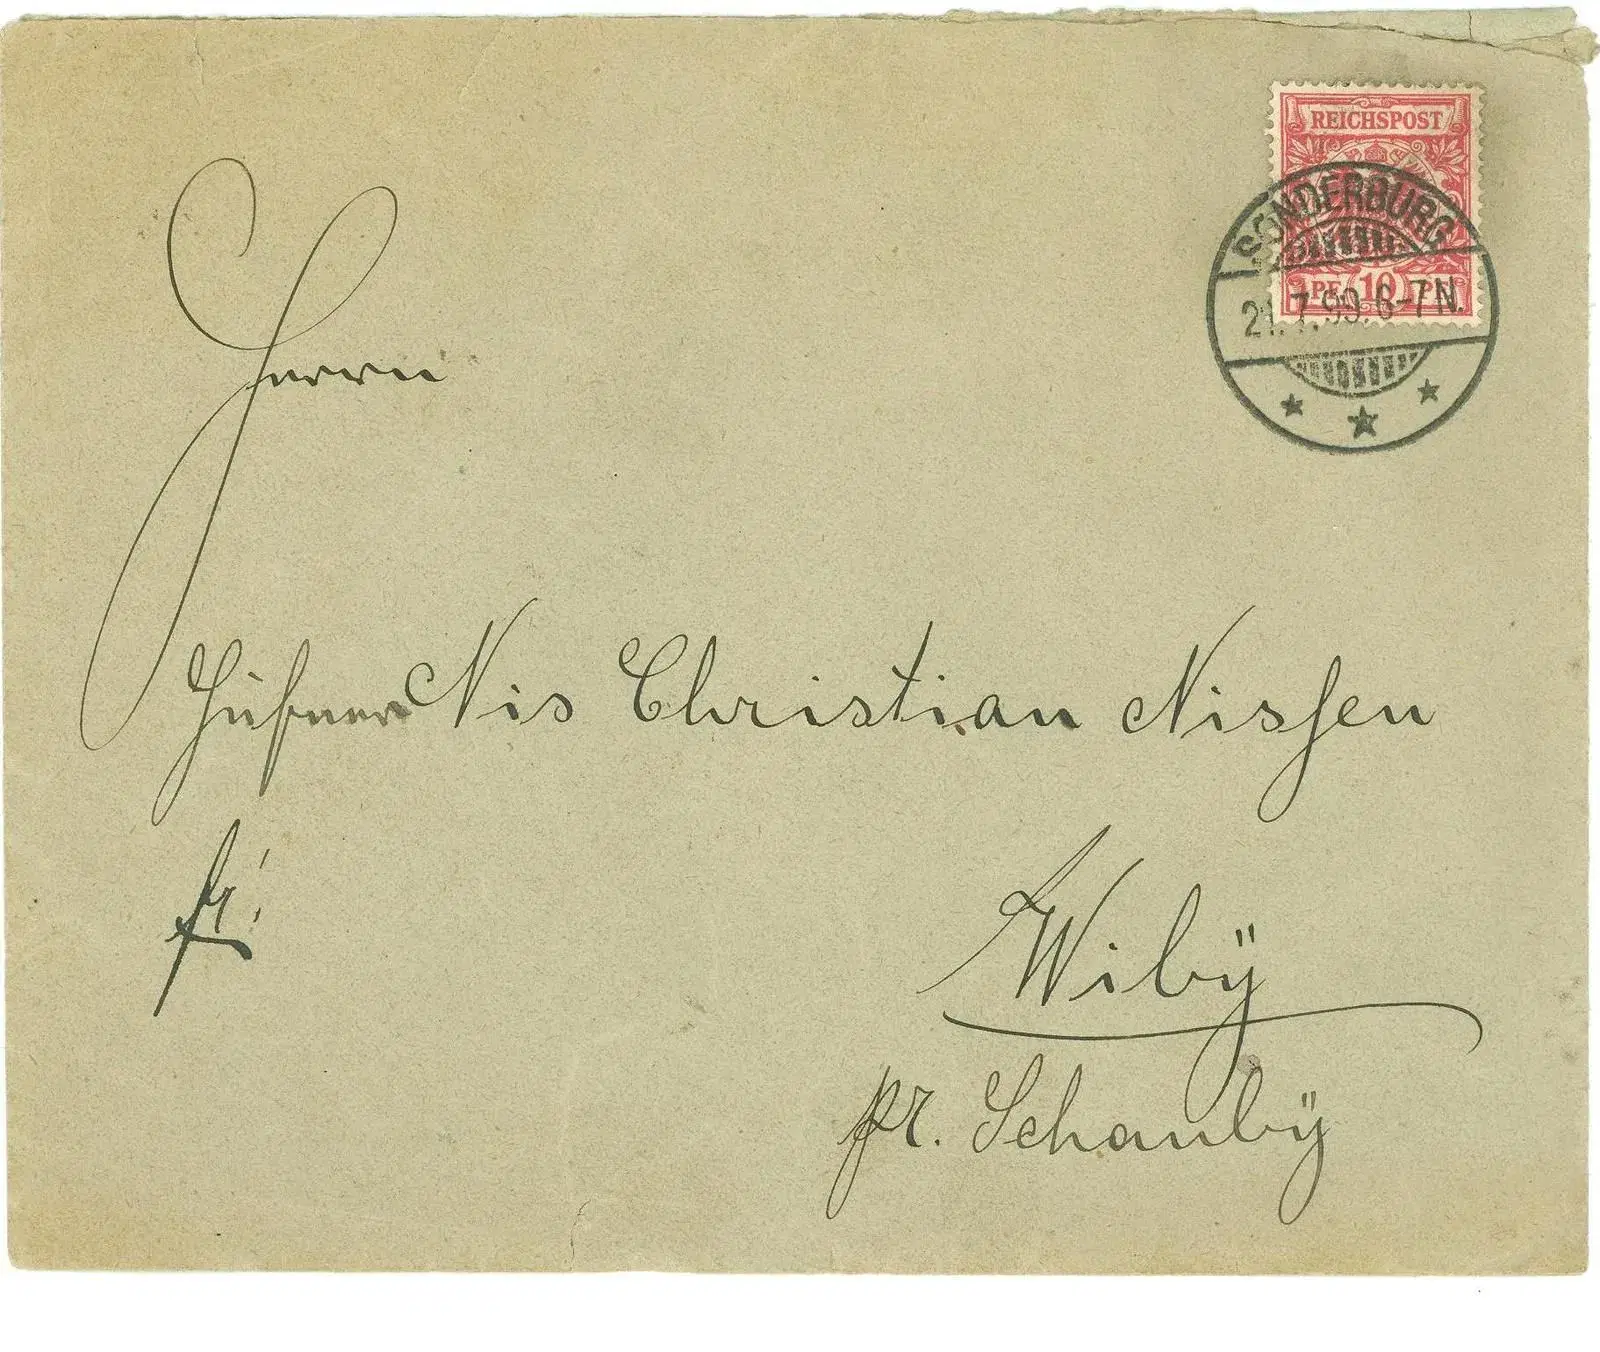 REICHSPOST
SONDERBURG
PF 10 PF
21.7.99.6-7N.
Herrn
Hüfner Nis Christian Nissen
fr!
Wibÿ
pr. Schaubÿ